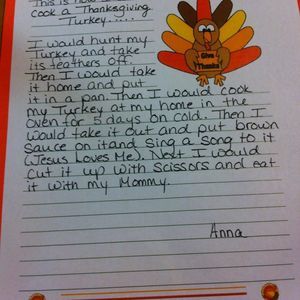 This is how I
cook a Thanksgiving
Turkey.....
I would hunt my
Turkey and take
its feathers off.
Then I would take
it home and put
it in a pan. Then I would cook
my Turkey at my home in the
oven for 5 days on cold. Then I
would take it out and put brown
sauce on it and sing a song to it
(Jesus Loves Me). Next I would
cut it up with scissors and eat
it with my Mommy.
Anna
Give
Thanks